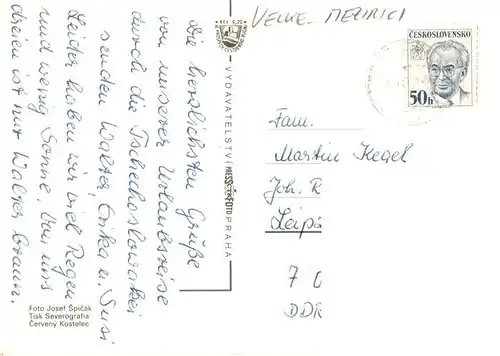 VELKÉ-MEZIŘIČI
ČESKOSLOVENSKO
50h
Die herzlichsten Grüße
von unserer Urlaubsreise
durch die Tschechoslowakei
senden Walter, Erika u. Susi
Leider haben wir viel Regen
und wenig Sonne. Von uns
dreien ist nur Walter braun.
Kčs 0,20
VYDAVATELSTVÍ PRESSFOTO PRAHA
Fam.
Martin Kegel
Joh. R
Leip
7 0
DDR
Foto Josef Špičák
Tisk Severografia
Červený Kostelec